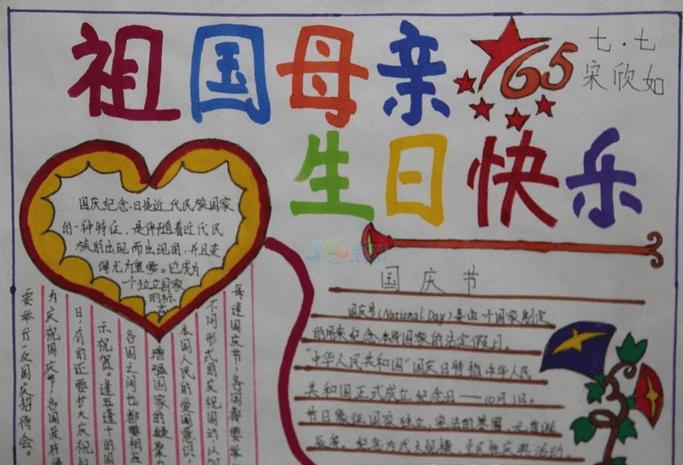 祖国母亲
65
七.七
宋欣如
生日快乐
国庆纪念日是近代民族国家
的一种特征,是伴随着近代民
族的出现而出现的,并且变
得尤为重要。它成为
一个独立国家
的标
志
每逢国庆节,各国都要举
不同形式的庆祝活动,以加
本国人民的爱国意识,
增强国家的凝聚力
各国之间也都要相互
示祝贺。逢五逢十的国
日,有的还要扩大庆祝
为庆祝国庆,各国政府通
要举行一次国庆招待会。
国庆节
国庆节(National Day)是由一个国家制定
的用来纪念本身国家的法定假日
"中华人民共和国"国庆日特指中华人民
共和国正式成立纪念日——10月1日。
节日象征国家独立,宪法的签署,元首诞